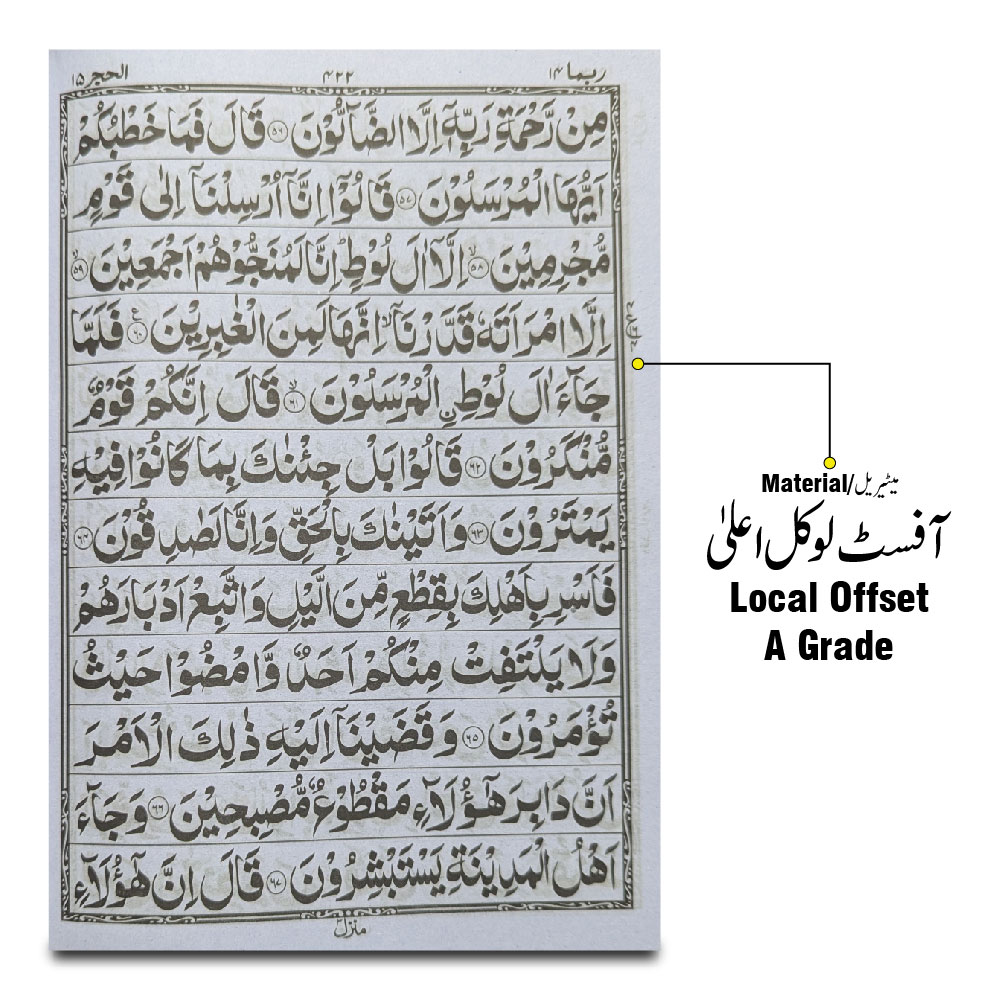 ربما ١٤ ٤٢٢ الحجر ١٥
مِنْ رَّحْمَةِ رَبِّهٖۤ اِلَّا الضَّآلُّوْنَ ﴿٥٦﴾ قَالَ فَمَا خَطْبُكُمْ
اَيُّهَا الْمُرْسَلُوْنَ ﴿٥٧﴾ قَالُوْۤا اِنَّاۤ اُرْسِلْنَاۤ اِلٰى قَوْمٍ
مُّجْرِمِيْنَ ﴿٥٨﴾ۙ اِلَّاۤ اٰلَ لُوْطٍ ؕ اِنَّا لَمُنَجُّوْهُمْ اَجْمَعِيْنَ ﴿٥٩﴾ۙ
اِلَّا امْرَاَتَهٗ قَدَّرْنَاۤ ۙ اِنَّهَا لَمِنَ الْغٰبِرِيْنَ ﴿٦٠﴾ع فَلَمَّا
جَآءَ اٰلَ لُوْطِ ِۨالْمُرْسَلُوْنَ ﴿٦١﴾ۙ قَالَ اِنَّكُمْ قَوْمٌ
مُّنْكَرُوْنَ ﴿٦٢﴾ قَالُوْا بَلْ جِئْنٰكَ بِمَا كَانُوْا فِيْهِ
يَمْتَرُوْنَ ﴿٦٣﴾ وَاَتَيْنٰكَ بِالْحَقِّ وَاِنَّا لَصٰدِقُوْنَ ﴿٦٤﴾
فَاَسْرِ بِاَهْلِكَ بِقِطْعٍ مِّنَ الَّيْلِ وَاتَّبِعْ اَدْبَارَهُمْ
وَلَا يَلْتَفِتْ مِنْكُمْ اَحَدٌ وَّامْضُوْا حَيْثُ
تُؤْمَرُوْنَ ﴿٦٥﴾ وَقَضَيْنَاۤ اِلَيْهِ ذٰلِكَ الْاَمْرَ
اَنَّ دَابِرَ هٰۤؤُلَآءِ مَقْطُوْعٌ مُّصْبِحِيْنَ ﴿٦٦﴾ وَجَآءَ
اَهْلُ الْمَدِيْنَةِ يَسْتَبْشِرُوْنَ ﴿٦٧﴾ قَالَ اِنَّ هٰۤؤُلَآءِ
منزل
Material/میٹیریل
آفسٹ لوکل اعلیٰ
Local Offset
A Grade